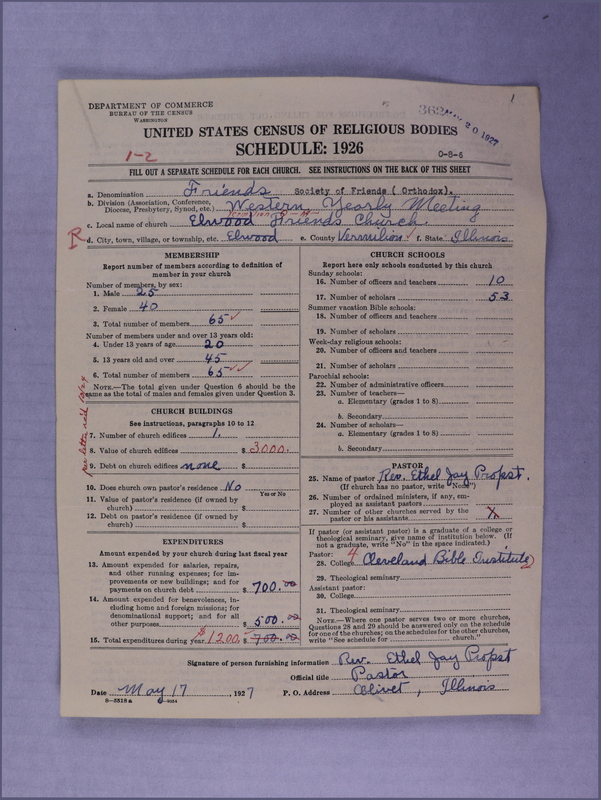 1
DEPARTMENT OF COMMERCE
BUREAU OF THE CENSUS
WASHINGTON
MAY 20 1927
UNITED STATES CENSUS OF RELIGIOUS BODIES
1-2
SCHEDULE: 1926
O-8-6
FILL OUT A SEPARATE SCHEDULE FOR EACH CHURCH. SEE INSTRUCTIONS ON THE BACK OF THIS SHEET
a. Denomination Friends Society of Friends (Orthodox).
b. Division (Association, Conference, Diocese, Presbytery, Synod, etc.) Western Yearly Meeting
c. Local name of church Elwood Friends Church.
R d. City, town, village, or township, etc. Elwood e. County Vermilion f. State Illinois
MEMBERSHIP
Report number of members according to definition of
member in your church
Number of members, by sex:
1. Male 25
2. Female 40
3. Total number of members 65
Number of members under and over 13 years old:
4. Under 13 years of age 20
5. 13 years old and over 45
6. Total number of members 65
NOTE.—The total given under Question 6 should be the
same as the total of males and females given under Question 3.
CHURCH BUILDINGS
See instructions, paragraphs 10 to 12
7. Number of church edifices 1.
8. Value of church edifices $ 3000.
9. Debt on church edifices none $
10. Does church own pastor's residence? No
Yes or No
11. Value of pastor's residence (if owned by
church) $
12. Debt on pastor's residence (if owned by
church) $
EXPENDITURES
Amount expended by your church during last fiscal year
13. Amount expended for salaries, repairs,
and other running expenses; for im-
provements or new buildings; and for
payments on church debt $ 700.00
14. Amount expended for benevolences, in-
cluding home and foreign missions; for
denominational support; and for all
other purposes $ 500.00
15. Total expenditures during year $1200 $ 700.00
CHURCH SCHOOLS
Report here only schools conducted by this church
Sunday schools:
16. Number of officers and teachers 10
17. Number of scholars 53
Summer vacation Bible schools:
18. Number of officers and teachers
19. Number of scholars
Week-day religious schools:
20. Number of officers and teachers
21. Number of scholars
Parochial schools:
22. Number of administrative officers
23. Number of teachers—
a. Elementary (grades 1 to 8)
b. Secondary
24. Number of scholars—
a. Elementary (grades 1 to 8)
b. Secondary
PASTOR
25. Name of pastor Rev. Ethel Jay Propst.
(If church has no pastor, write "None")
26. Number of ordained ministers, if any, em-
ployed as assistant pastors
27. Number of other churches served by the
pastor or his assistants X
If pastor (or assistant pastor) is a graduate of a college or
theological seminary, give name of institution below. (If
not a graduate, write "No" in the space indicated.)
Pastor:
28. College 4 Cleveland Bible Institute
29. Theological seminary
Assistant pastor:
30. College
31. Theological seminary
NOTE.—Where one pastor serves two or more churches,
Questions 28 and 29 should be answered only on the schedule
for one of the churches; on the schedules for the other churches,
write "See schedule for church."
Signature of person furnishing information Rev. Ethel Jay Propst
Official title Pastor
Date May 17, 1927 P. O. Address Olivet, Illinois